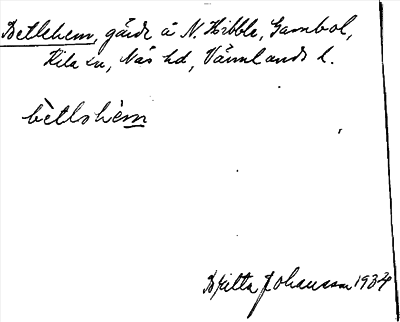 Betlehem, gärde å N. Kibble, Gambol,
Kila sn, Näs hd, Värmlands l.
bètlshèm
Britta Johansson 1934